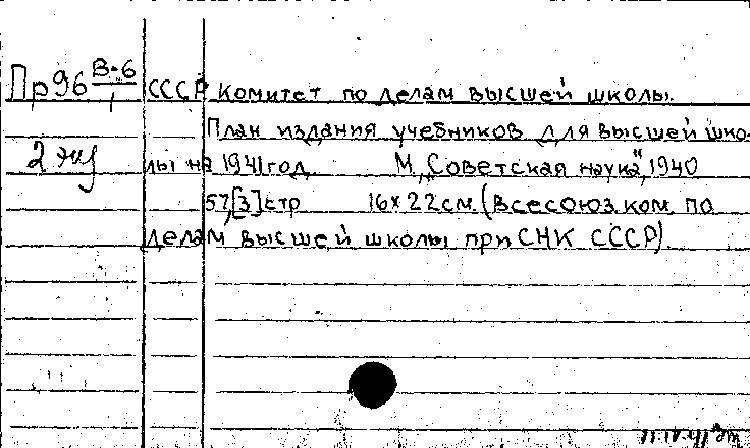 Пр96 В-6/1 СССР Комитет по делам высшей школы.
План издания учебников для высшей шко-
2 экз лы на 1941 год М, „Советская наука", 1940
57,[3] стр 16x22см. (Всесоюз.ком. по
делам высшей школы при СНК СССР)